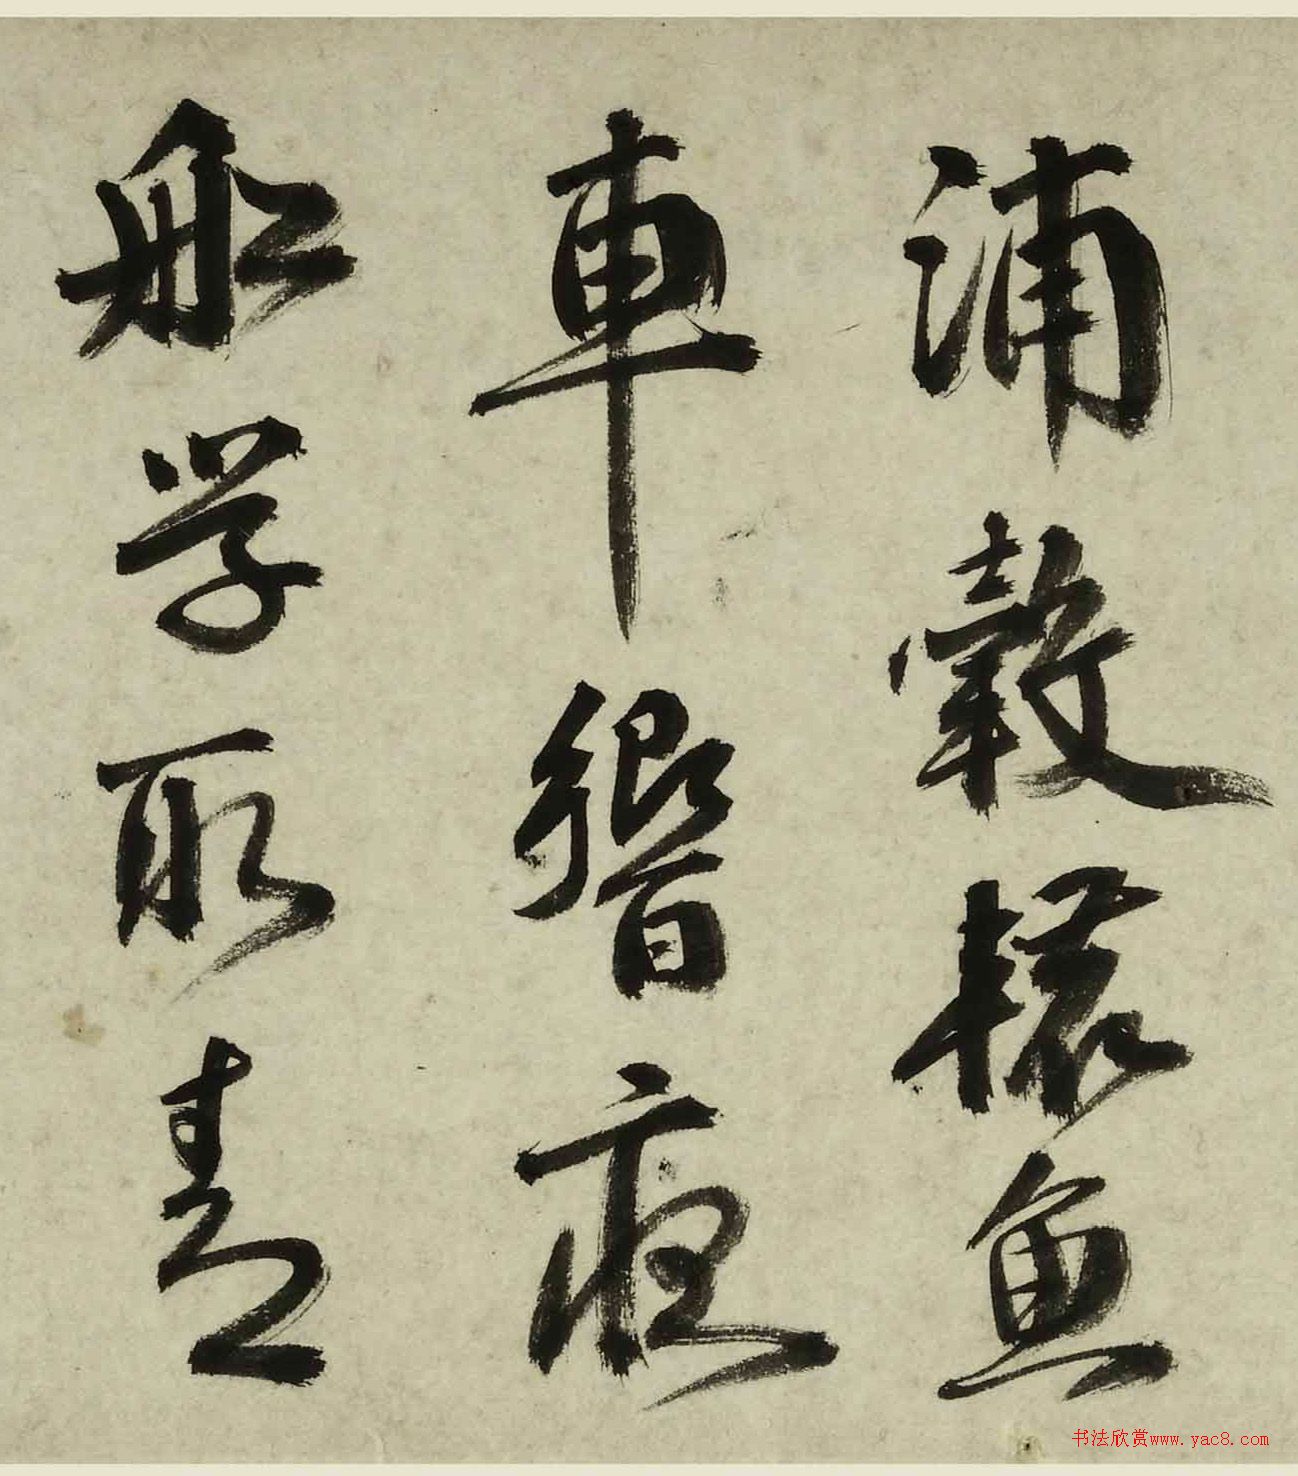 浦轂轆魚
車響夜
船学取青
书法欣赏www.yac8.com